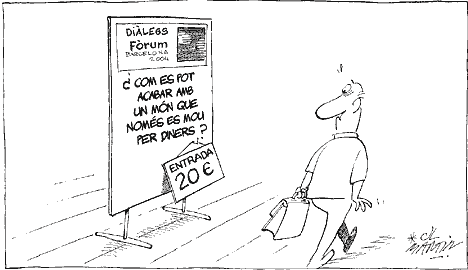 DIÀLEGS
Fòrum
BARCELONA
2004
¿ COM ES POT
ACABAR AMB
UN MÓN QUE
NOMÉS ES MOU
PER DINERS ?
ENTRADA
20 €